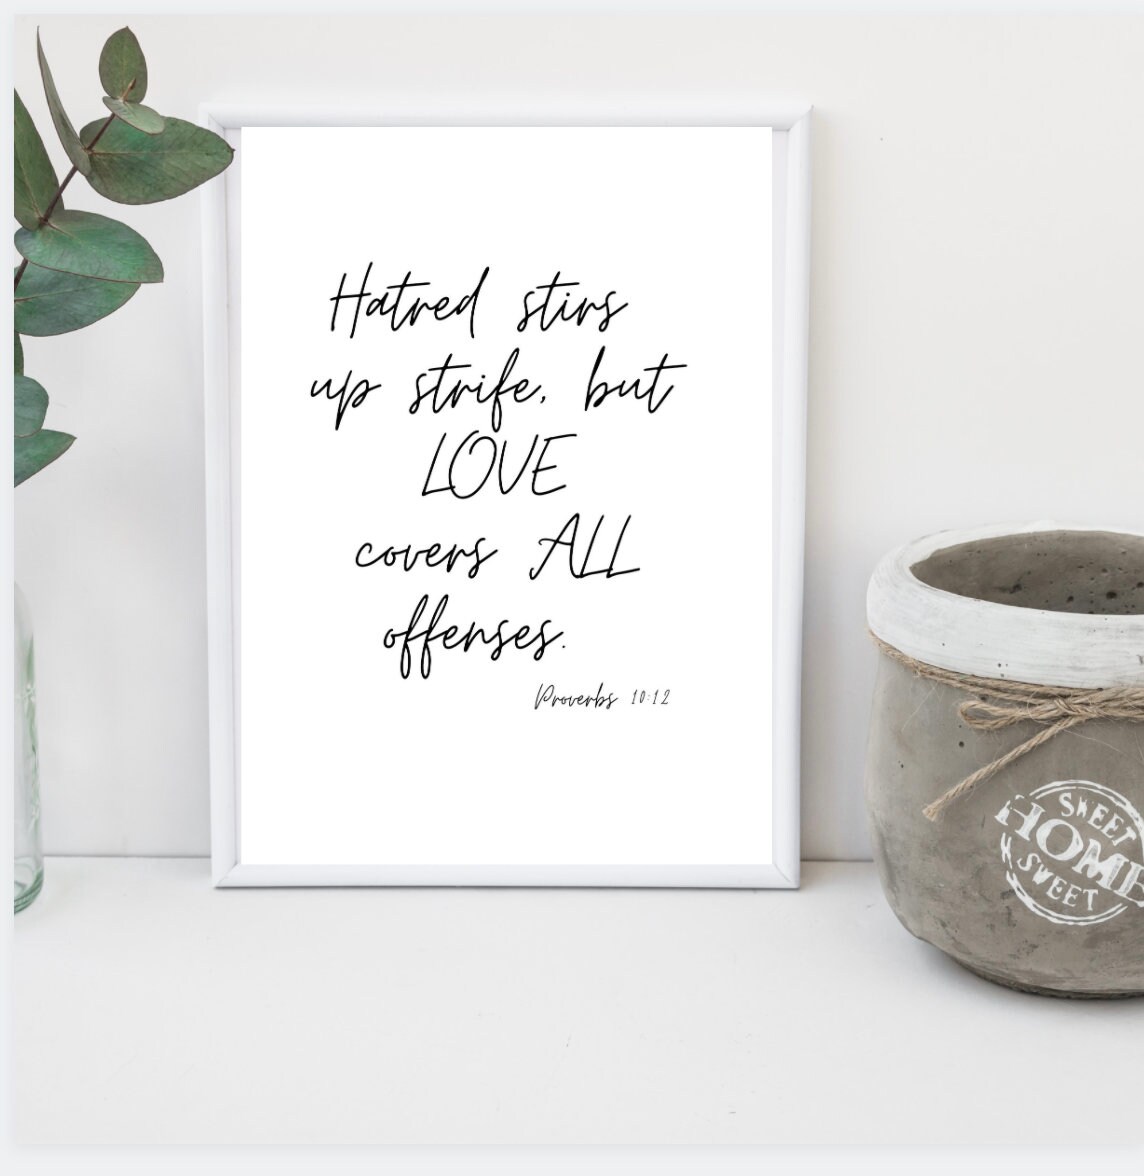 Hatred stirs
up strife, but
LOVE
covers ALL
offenses.
Proverbs 10:12
SWEET
HOME
SWEET